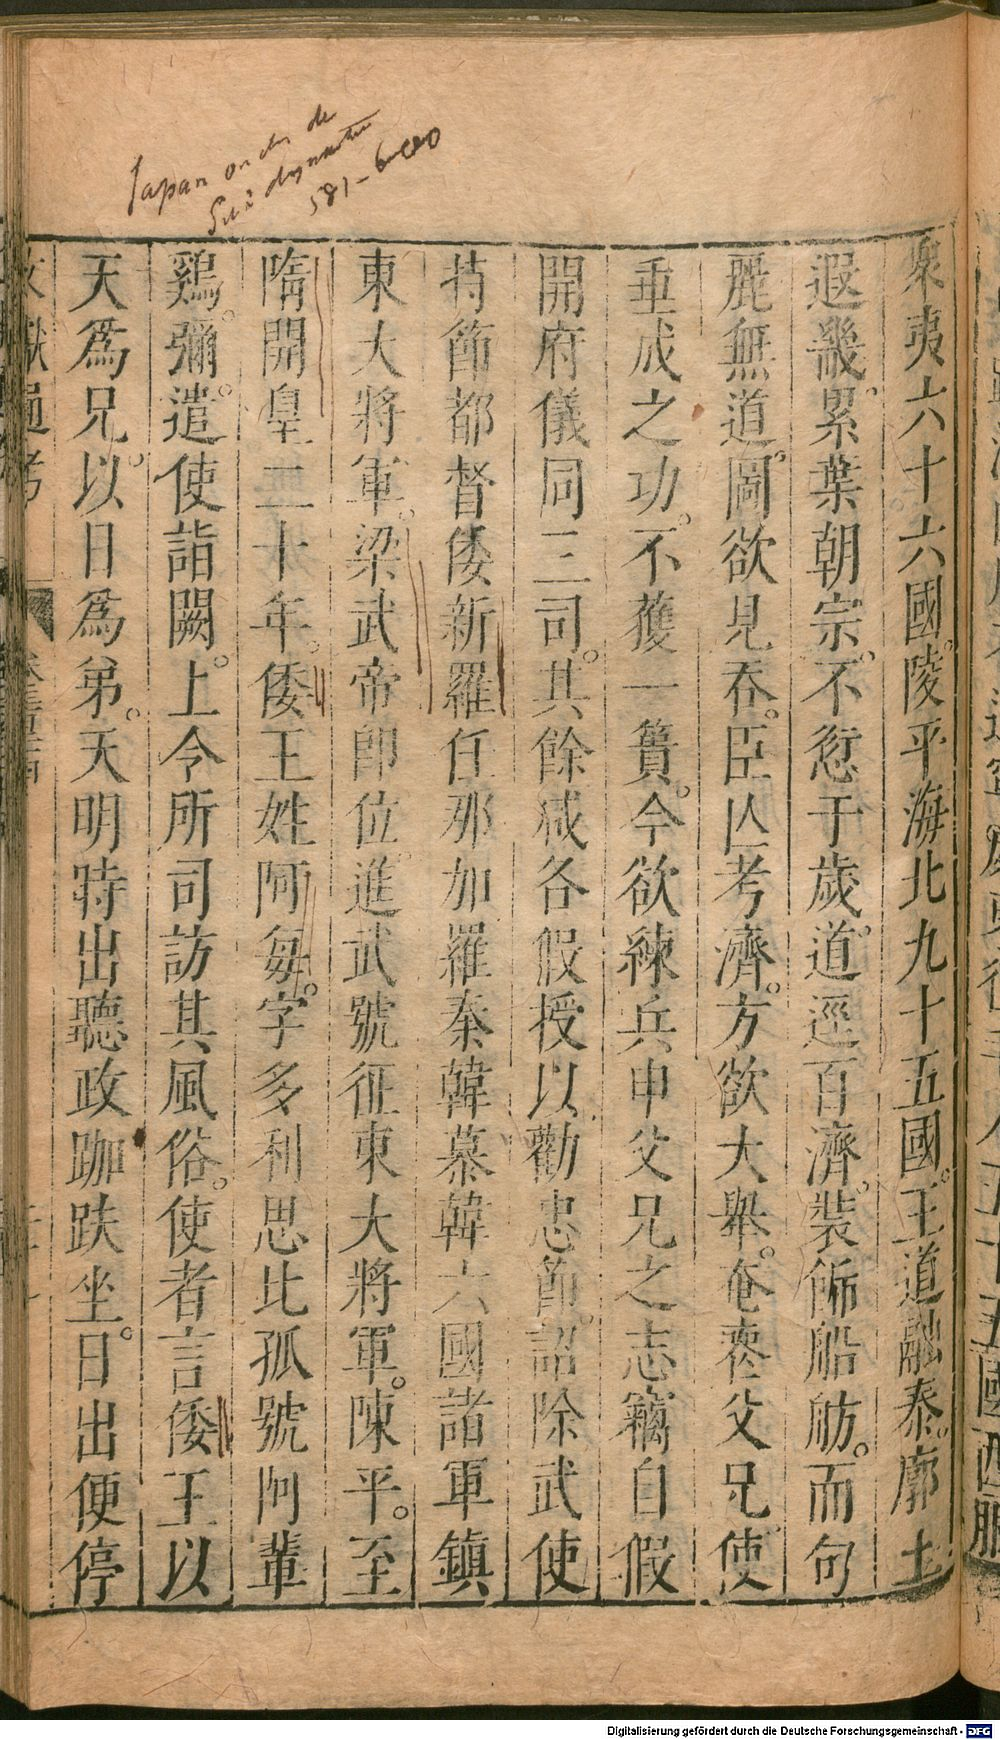 Japan under the
Sui dynasty
衆夷六十六國。陵平海北九十五國。王道融泰。廓土
遐畿。累葉朝宗。不愆于歲。道逕百濟。裝飾船舫。而句
麗無道。圖欲見吞。臣亾考濟。方欲大舉。奄喪父兄使
垂成之功。不獲一簣。今欲練兵申父兄之志竊自假
開府儀同三司。其餘咸各假授以勸忠節。詔除武使
持節都督倭新羅任那加羅秦韓慕韓六國諸軍鎮
東大將軍。梁武帝卽位。進武號征東大將軍。陳平。至
隋開皇二十年。倭王姓阿每。字多利思比孤號阿輩
鷄。彌遣。使詣闕。上令所司訪其風俗。使者言倭王以
天爲兄。以日爲弟。天明時出聽政跏趺坐。日出便停
文獻通考
Digitalisierung gefördert durch die Deutsche Forschungsgemeinschaft - DFG